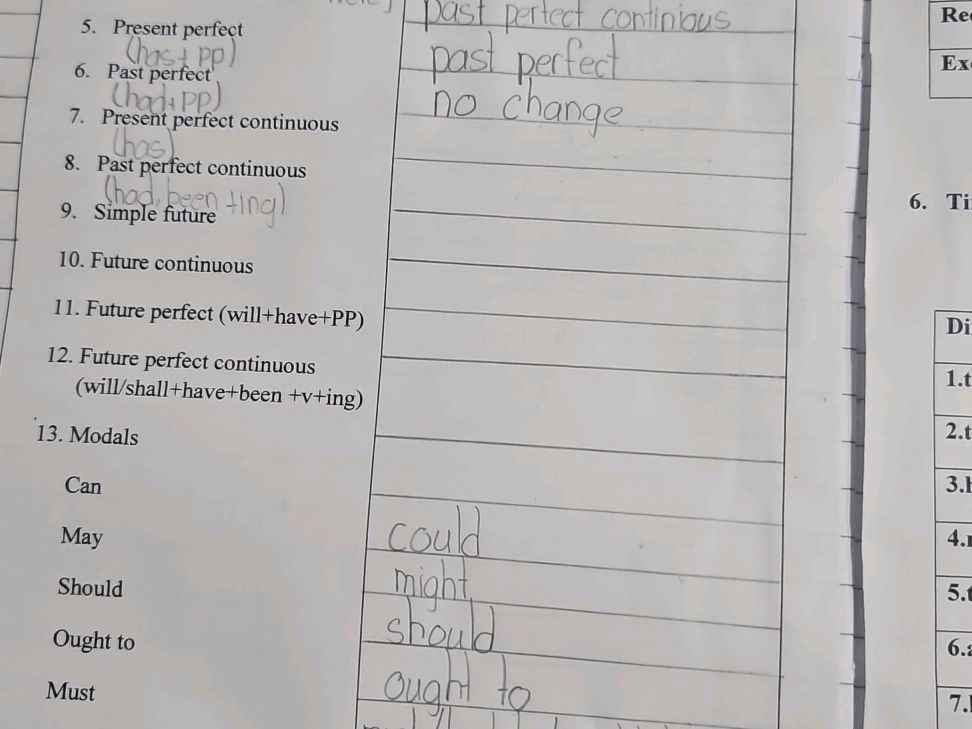 past perfect continious
5. Present perfect
(has+pp)
past perfect
6. Past perfect
(had+pp)
no change
7. Present perfect continuous
(has)
8. Past perfect continuous
(had, been +ing)
9. Simple future
10. Future continuous
11. Future perfect (will+have+PP)
12. Future perfect continuous
(will/shall+have+been +v+ing)
13. Modals
Can
could
May
might
Should
should
Ought to
ought to
Must
6.
1.
2.
3.
4.
5.
6.
7.